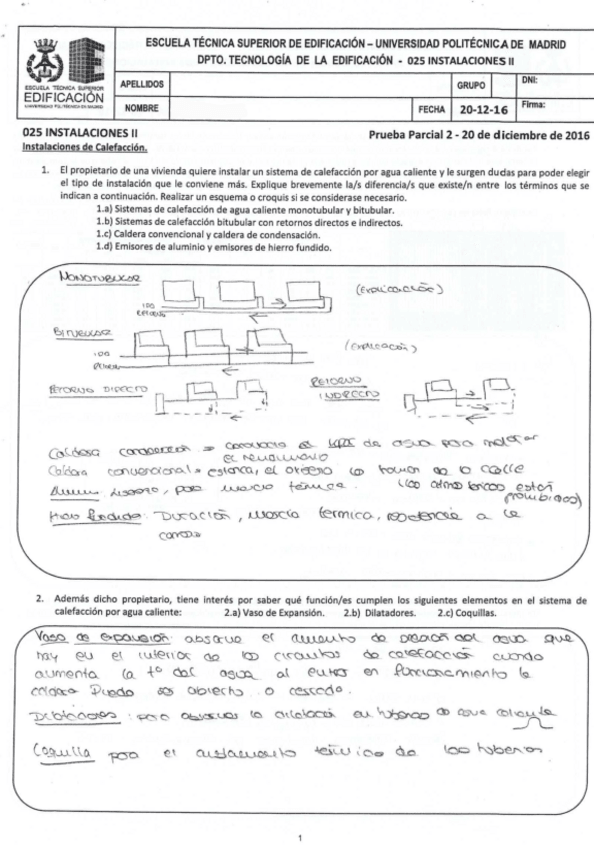 ESCUELA TÉCNICA SUPERIOR DE EDIFICACIÓN – UNIVERSIDAD POLITÉCNICA DE MADRID
DPTO. TECNOLOGÍA DE LA EDIFICACIÓN - 025 INSTALACIONES II
ESCUELA TÉCNICA SUPERIOR
EDIFICACIÓN
UNIVERSIDAD POLITÉCNICA DE MADRID
APELLIDOS GRUPO DNI:
NOMBRE FECHA 20-12-16 Firma:
025 INSTALACIONES II Prueba Parcial 2 - 20 de diciembre de 2016
Instalaciones de Calefacción.
1. El propietario de una vivienda quiere instalar un sistema de calefacción por agua caliente y le surgen dudas para poder elegir
el tipo de instalación que le conviene más. Explique brevemente la/s diferencia/s que existe/n entre los términos que se
indican a continuación. Realizar un esquema o croquis si se considerase necesario.
1.a) Sistemas de calefacción de agua caliente monotubular y bitubular.
1.b) Sistemas de calefacción bitubular con retornos directos e indirectos.
1.c) Caldera convencional y caldera de condensación.
1.d) Emisores de aluminio y emisores de hierro fundido.
MONOTUBULAR
(explicación)
IDA
RETORNO
BITUBULAR
(explicación)
IDA
RETORNO DIRECTO
RETORNO
INDIRECTO
Caldera condensación de agua para mejorar
el rendimiento
Caldera convencional estanca, el oxígeno lo toman de la calle
(las atmosféricas están
prohibidas)
ligero, poca inercia térmica.
Hierro fundido: Duración, inercia térmica, resistencia a la
2. Además dicho propietario, tiene interés por saber qué función/es cumplen los siguientes elementos en el sistema de
calefacción por agua caliente: 2.a) Vaso de Expansión. 2.b) Dilatadores. 2.c) Coquillas.
Vaso de expansión: absorve el aumento de presión del agua que
hay en el interior de los circuitos de calefacción cuando
aumenta la tª del agua al entrar en funcionamiento la
caldera. Puede ser abierto o cerrado.
Dilatadores: para absorver la dilatación en tuberías de agua caliente
Coquilla para el aislamiento térmico de las tuberías
1